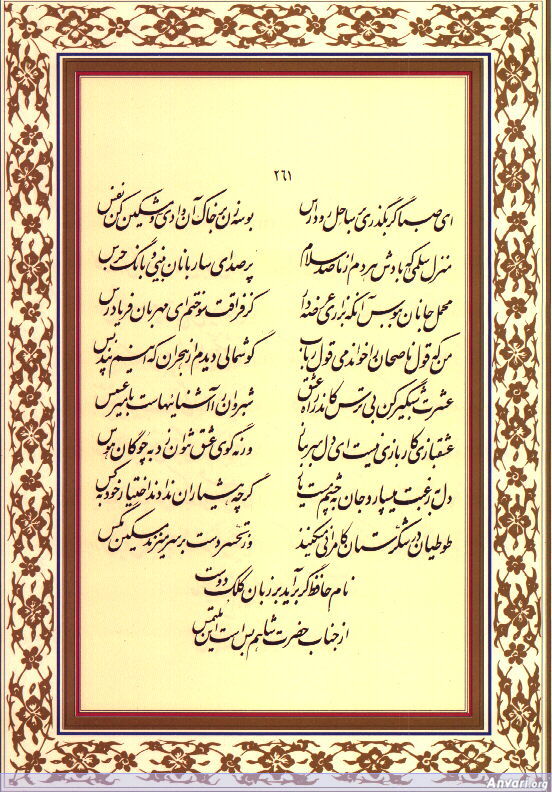 ۲۶۱
ای صبا گر بگذری بر ساحل رود ارس بوسه زن بر خاک آن وادی و مشکین کن نفس
منزل سلمی که بادش هر دم از ما صد سلام پر صدای ساربانان بینی و بانگ جرس
محمل جانان ببوس آنگه بزاری عرضه دار کز فراقت سوختم ای مهربان فریاد رس
من که قول ناصحان را خواندمی قول رباب گوشمالی دیدم از هجران که اینم پند بس
عشرت شبگیر کن بی ترس کاندر راه عشق شبروان را آشنایی‌هاست با میر عسس
عشقبازی کار بازی نیست ای دل سر بباز ورنه گوی عشق نتوان زد به چوگان هوس
دل برغبت میسپارد جان به چشم مست یار گرچه هشیاران ندادند اختیار خود به کس
طوطیان در شکرستان کامرانی میکنند وز تحسر دست بر سر میزند مسکین مگس
نام حافظ گر برآید بر زبان کلک دوست
از جناب حضرت شاهم بس است این ملتمس
Anvari.org